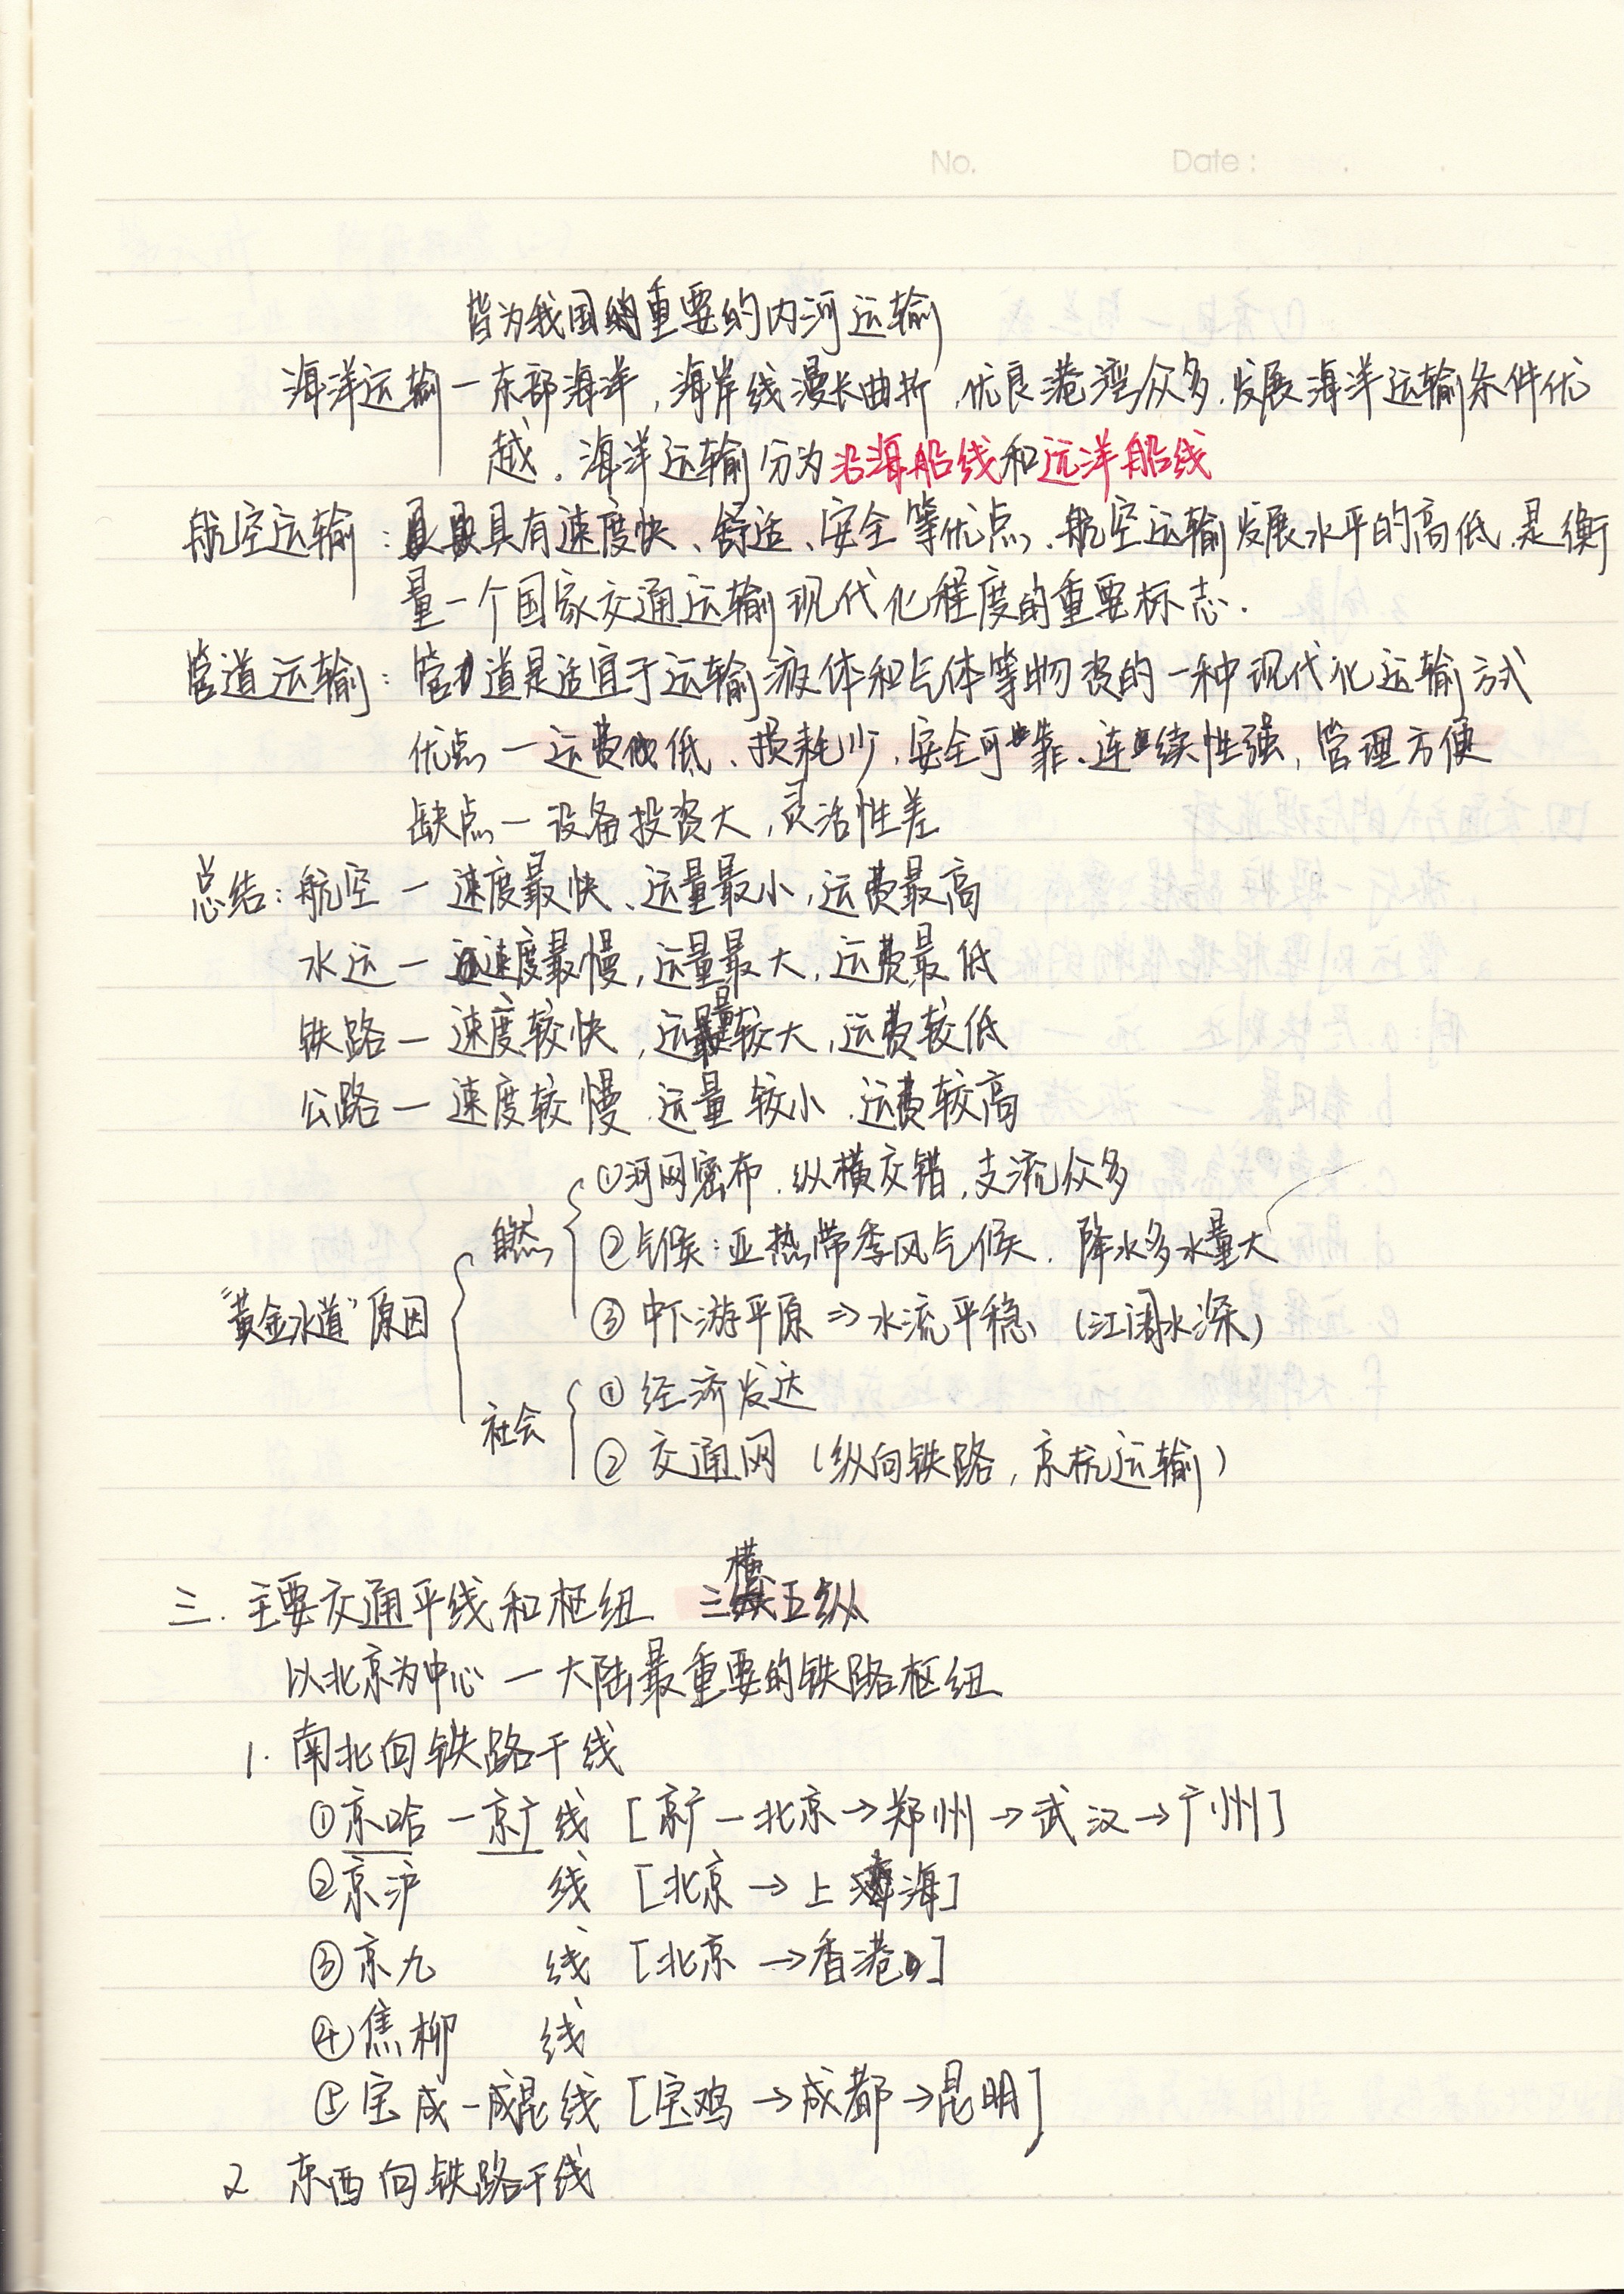 No. Date:
皆为我国的重要的内河运输
海洋运输—东部海洋,海岸线漫长曲折,优良港湾众多,发展海洋运输条件优
越,海洋运输分为沿海船线和远洋船线
航空运输:具有速度快、舒适、安全等优点,航空运输发展水平的高低,是衡
量一个国家交通运输现代化程度的重要标志.
管道运输:管道是适宜于运输液体和气体等物资的一种现代化运输方式
优点—运费低、损耗少,安全可靠、连续性强,管理方便
缺点—设备投资大,灵活性差
总结:航空—速度最快、运量最小,运费最高
水运—速度最慢,运量最大,运费最低
铁路—速度较快,运量较大,运费较低
公路—速度较慢,运量较小,运费较高
①河网密布,纵横交错,支流众多
自然 ②气候:亚热带季风气候,降水多水量大
"黄金水道"原因 ③中下游平原⇒水流平稳(江阔水深)
①经济发达
社会 ②交通网(纵向铁路,京杭运输)
三.主要交通平线和枢纽 三横五纵
以北京为中心—大陆最重要的铁路枢纽
1.南北向铁路干线
①京哈—京广线[京广—北京→郑州→武汉→广州]
②京沪线[北京→上海]
③京九线[北京→香港]
④焦柳线
⑤宝成—成昆线[宝鸡→成都→昆明]
2 东西向铁路干线